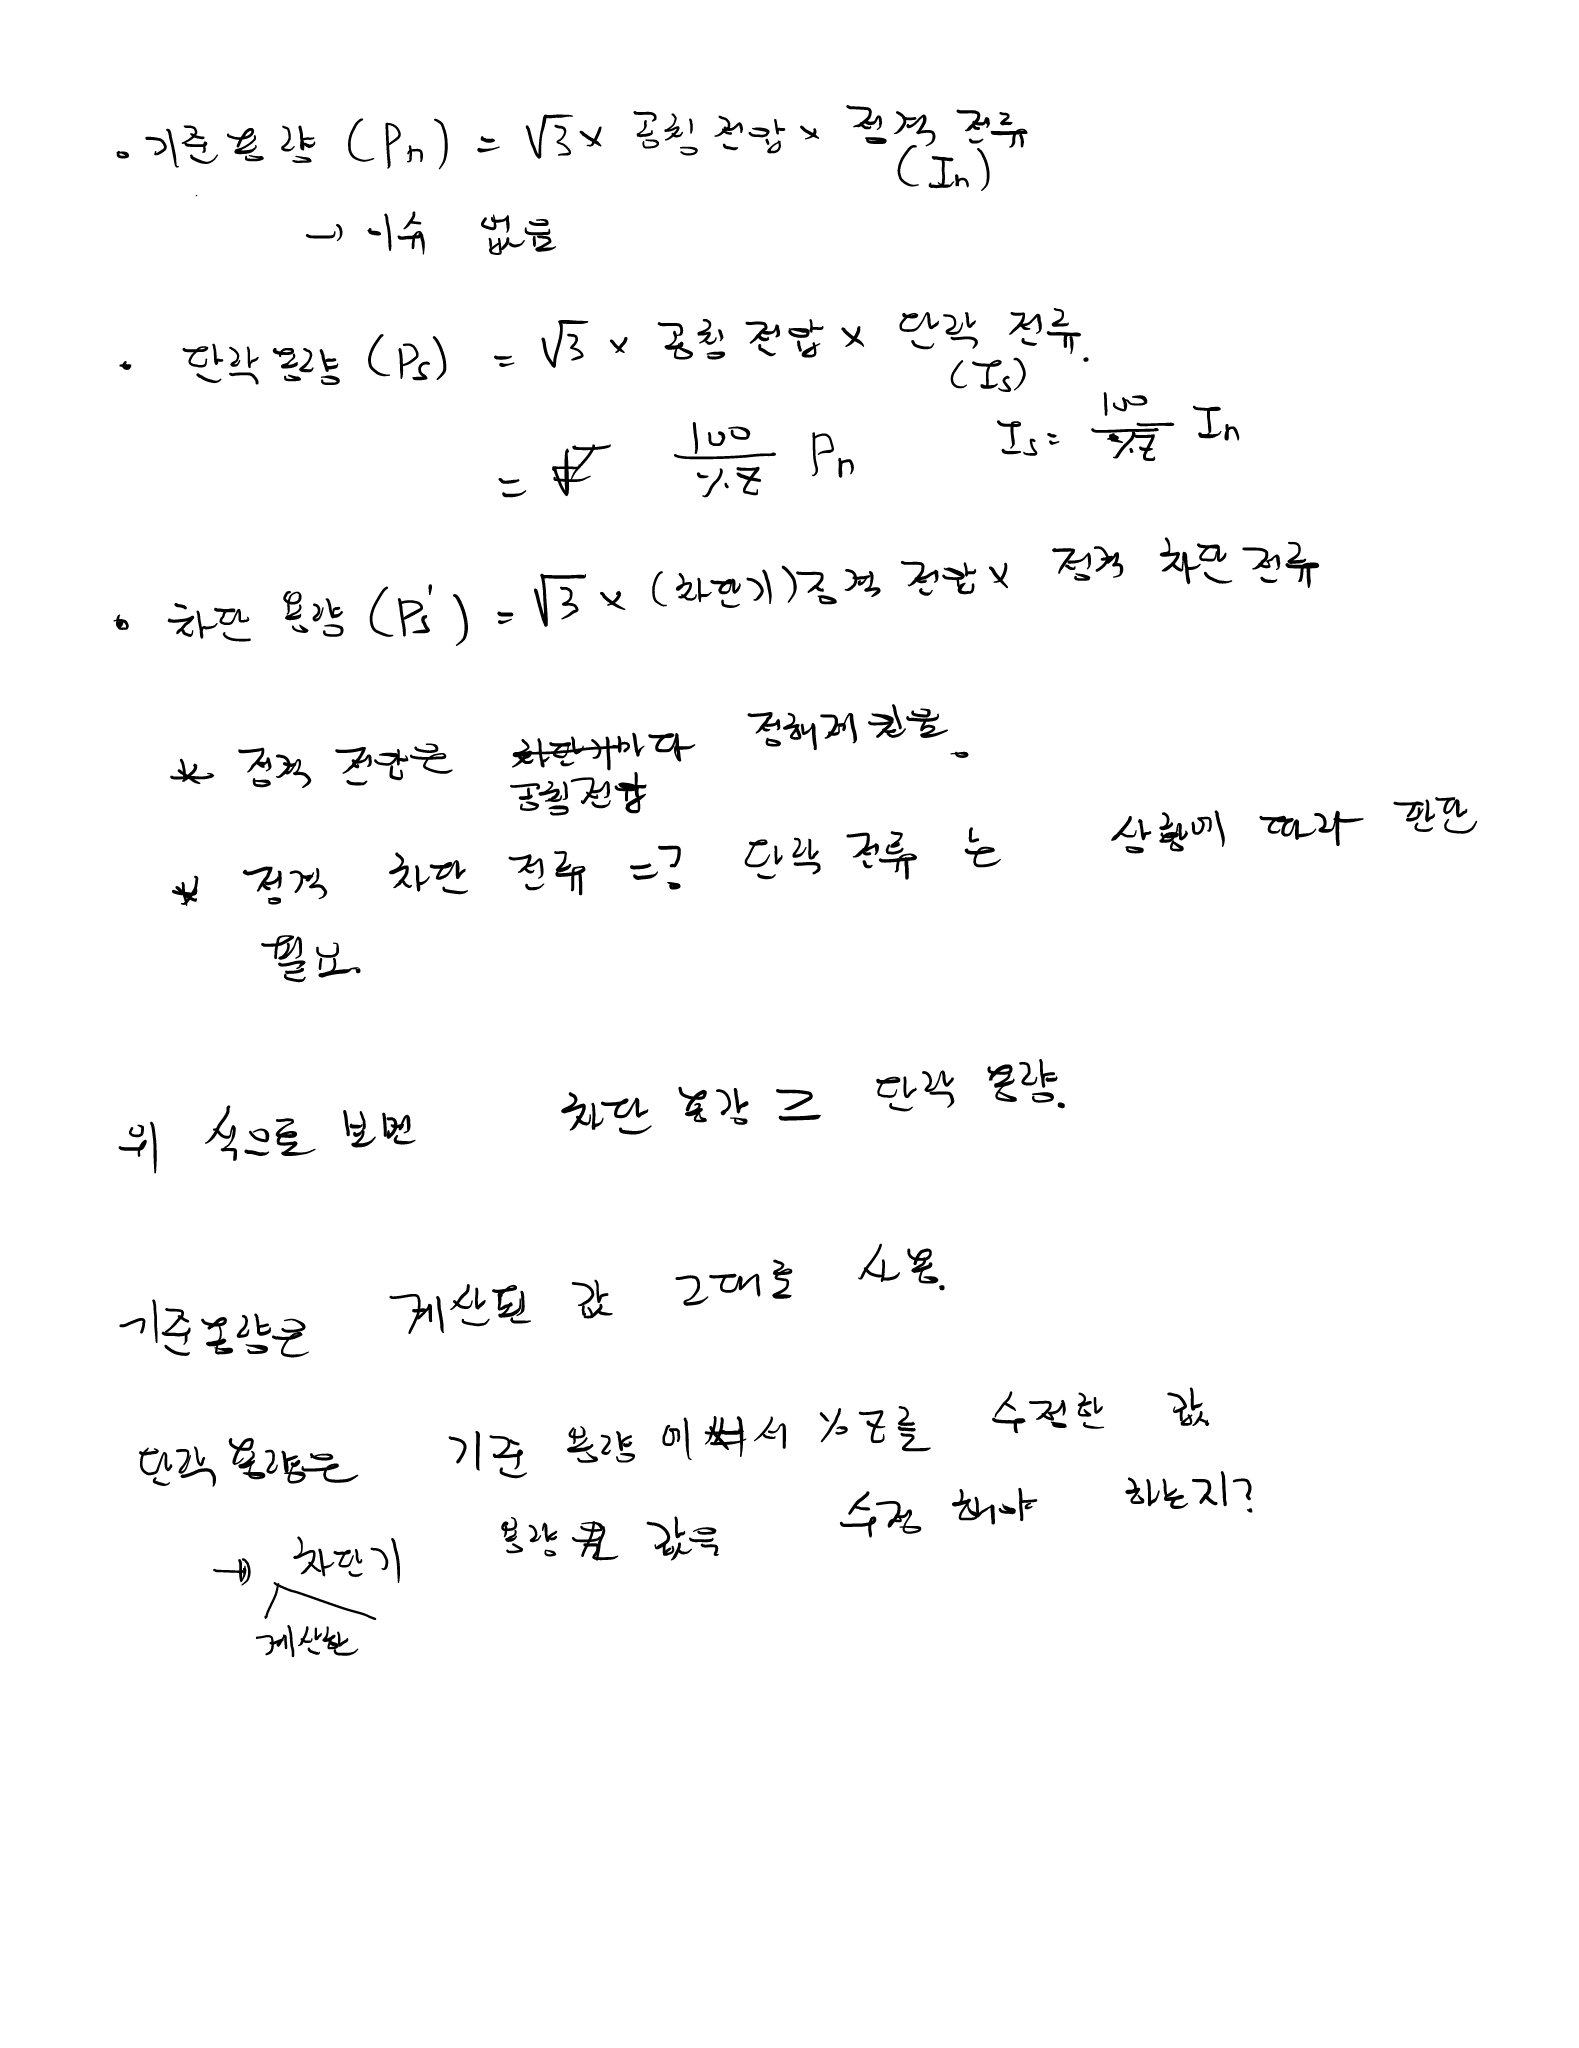 • 기준용량 (Pn) = √3 × 공칭전압 × 정격 전류
(In)
→ 이슈 없음
• 단락용량 (Ps) = √3 × 공칭전압 × 단락 전류.
(Is)
= 100/%Z Pn   Is = 100/%Z In
• 차단 용량 (Ps') = √3 × (차단기)정격 전압 × 정격 차단 전류
* 정격 전압은 차단기마다 정해져 있음.
공칭전압
* 정격 차단 전류 =? 단락 전류 는 상황에 따라 판단
필요.
위 식으로 보면 차단 용량 ≥ 단락 용량.
기준용량은 계산된 값 그대로 사용.
단락용량은 기준 용량에서 %Z를 수정한 값
→ 차단기 용량 값을 수정 해야 하는지?
계산한